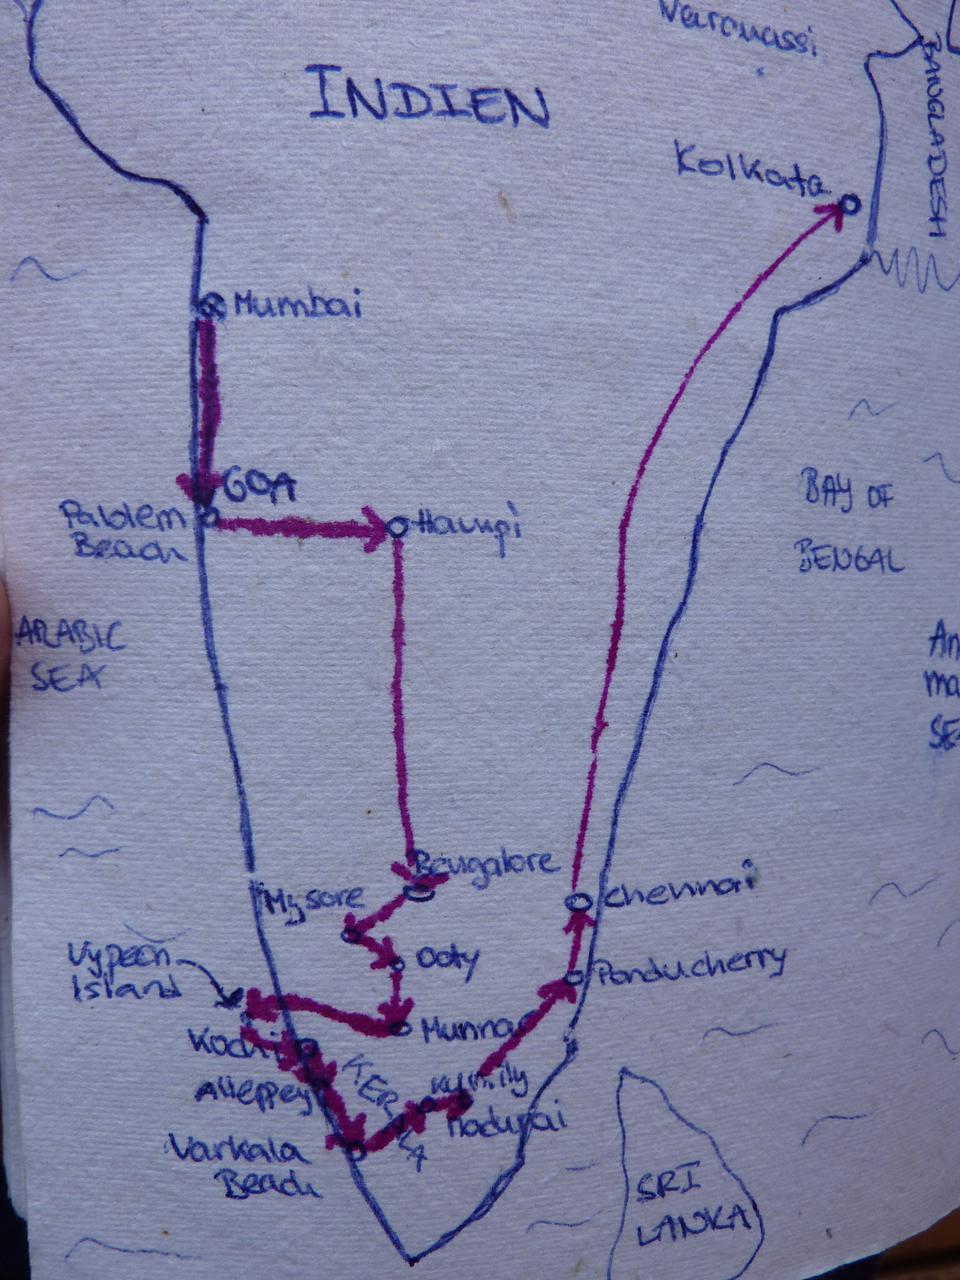 Varanassi
INDIEN
BANGLADESH
Kolkata
Mumbai
GOA
Palolem
Beach
Hampi
BAY OF
BENGAL
ARABIC
SEA
An
ma
SE
Bengalore
Mysore
Chennai
Vypeen
Island
Ooty
Ponducherry
Munnar
Kochi
KERALA
Alleppey
Kumily
Madurai
Varkala
Beach
SRI
LANKA